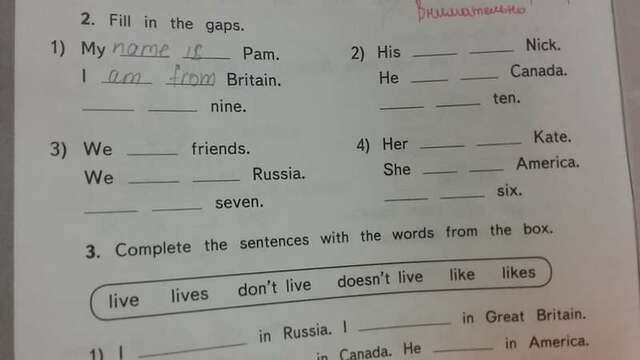 внимательно
2. Fill in the gaps.
1) My name is Pam.
I am from Britain.
____ ____ nine.
2) His ____ ____ Nick.
He ____ ____ Canada.
____ ____ ten.
3) We ____ friends.
We ____ ____ Russia.
____ ____ seven.
4) Her ____ ____ Kate.
She ____ ____ America.
____ ____ six.
3. Complete the sentences with the words from the box.
live lives don't live doesn't live like likes
1) I ____ in Russia. I ____ in Great Britain.
in Canada. He ____ in America.